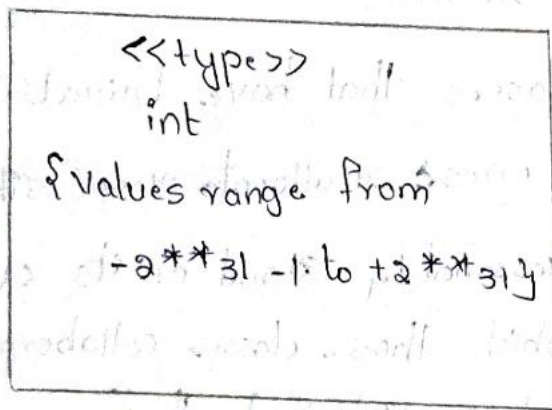 <<type>>
int
{values range from
-2**31 -1. to +2**31}